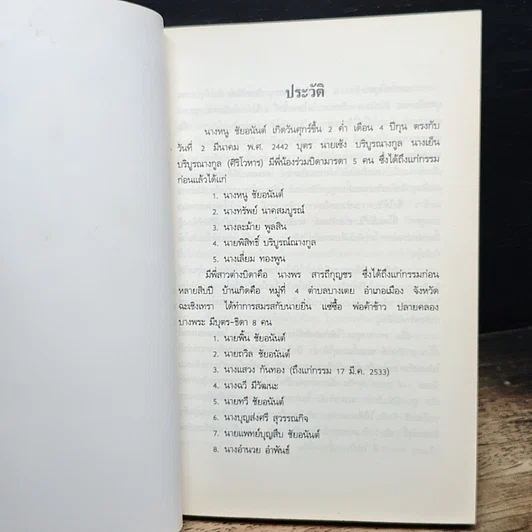 ประวัติ
นางหนู ชัยอนันต์ เกิดวันศุกร์ขึ้น 2 ค่ำ เดือน 4 ปีกุน ตรงกับ
วันที่ 2 มีนาคม พ.ศ. 2442 บุตร นายเซ้ง บริบูรณางกูล นางเย็น
บริบูรณางกูล (ศิริโวหาร) มีพี่น้องร่วมบิดามารดา 5 คน ซึ่งได้ถึงแก่กรรม
ก่อนแล้วได้แก่
1. นางหนู ชัยอนันต์
2. นางทรัพย์ นาคสมบูรณ์
3. นางละม้าย พูลสิน
4. นายพิสิทธิ์ บริบูรณ์ณางกูล
5. นางเลี่ยม ทองพูน
มีพี่สาวต่างบิดาคือ นางพร สารถีกุญชร ซึ่งได้ถึงแก่กรรมก่อน
หลายสิบปี บ้านเกิดคือ หมู่ที่ 4 ตำบลบางเตย อำเภอเมือง จังหวัด
ฉะเชิงเทรา ได้ทำการสมรสกับนายยิ่น แซ่ซื้อ พ่อค้าข้าว ปลายคลอง
บางพระ มีบุตร-ธิดา 8 คน
1. นายพื้น ชัยอนันต์
2. นายถวิล ชัยอนันต์
3. นางแสวง กันทอง (ถึงแก่กรรม 17 มี.ค. 2533)
4. นางฉวี มีวัฒนะ
5. นายทวี ชัยอนันต์
6. นางบุญส่งศรี สุวรรณกิจ
7. นายแพทย์บุญสืบ ชัยอนันต์
8. นางอำนวย อำพันธ์